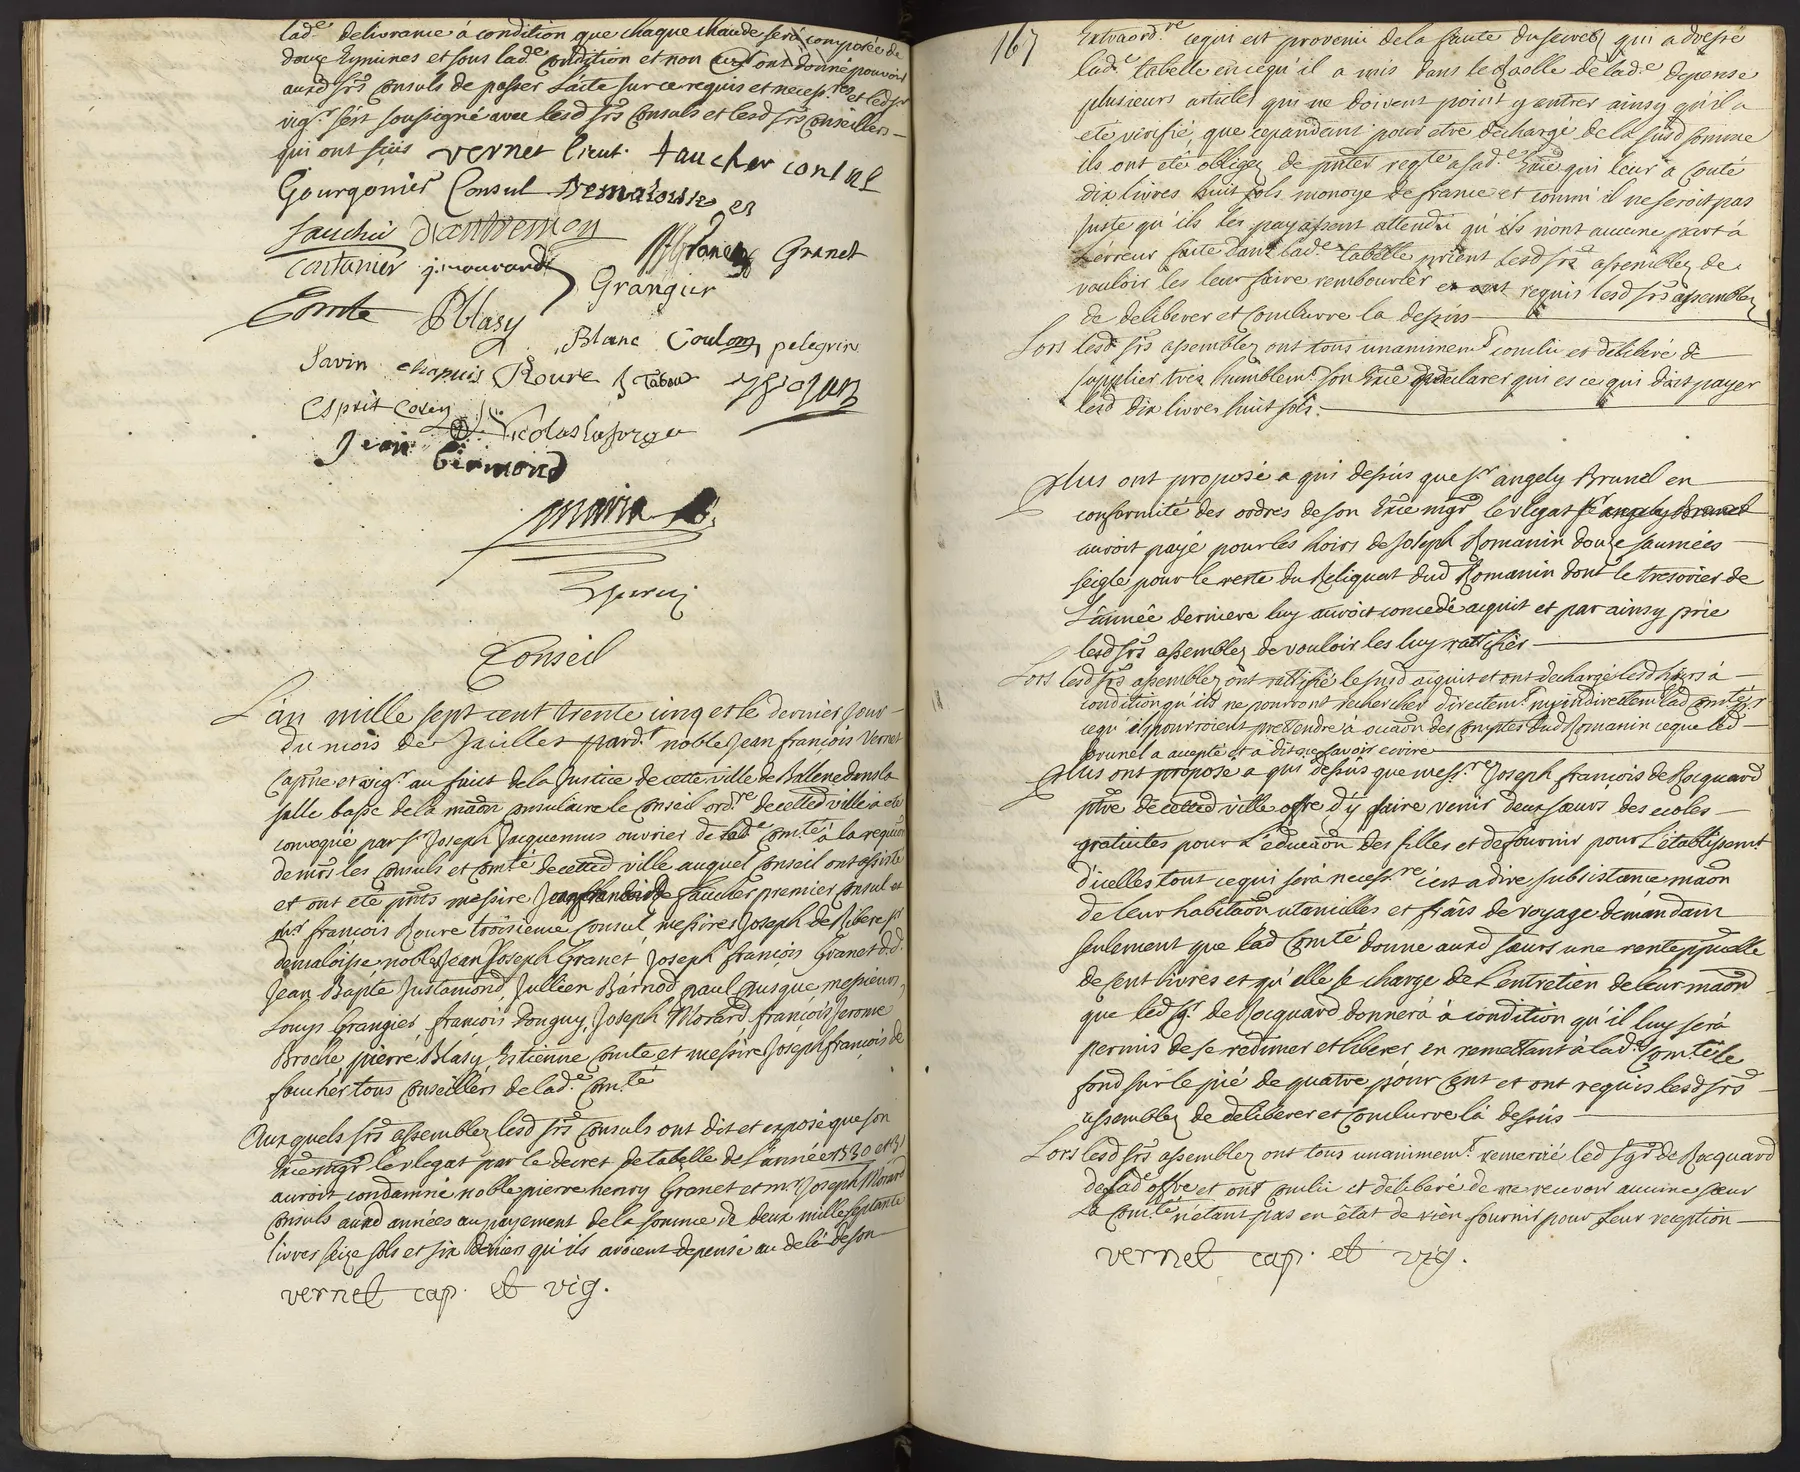 lad.e delivrance à condition que chaque chaude sera composée de
douze Eymines et sous lad.e condition et non ont donné pouvoir
auxd srs Consuls de passer L'acte sur ce requis et necess.res et led sr
vig.r s'est soussigné avec lesd srs Consuls et lesd srs Conseillers
qui ont sçüs vernet lieut. faucher consul
Gourgonier Consul Demaloisse
fauchier d'antremon
costanier j. mourard france Granet
Grangier
Comte PBlasy
Blanc Coulom pelegrin
Savin chapuis Roure Tabour
Esprit Coren Nicolas laforge
Jean Germond
marin

Conseil
L'an mille sept cent trente cinq et le dernier jour
du mois de Juillet pard.t noble Jean françois Vernet
Cap.ne et vig.r au faict de la Justice de cette ville de Vallene dans la
salle basse de la maõn consulaire le Conseil ord.re de cetted ville a eté
convoqué par sr Joseph Jacquemus ouvrier de lad.e Com.té à la requon
de mrs les Consuls et Com.té de cetted ville auquel Conseil ont assisté
et ont eté pnts messire de faucher premier Consul et
mr françois Roure troisieme Consul messires Joseph de Ribere sr
demaloisse noble Jean Joseph Granet Joseph françois Granet d.d.
Jean Bapte Justamond, Jullien Barnod paul messieurs
Louys Grangier françois Donguy, Joseph Morard françois Jerome
Broche pierre Blasy Estienne Comte et messire Joseph françois de
faucher tous Conseillers de lad.e Com.té
Auxquels srs assemblez lesd srs Consuls ont dit et exposé que son
Exce mgr le vlegat par le decret de tabelle de l'année 1730 et 31
auroit condamné noble pierre henry Granet et mr Joseph Morard
Consuls auxd années au payement de la somme de deux mille septante
livres seize sols et six deniers qu'ils avoient depensé au delà de son
vernet cap. et vig.

167
Extraord.re ce qui est provenu de la faute du secret.e qui a dressé
lad.e tabelle en ce qu'il a mis dans le Roolle de lad.e depense
plusieurs articles qui ne doivent point y entrer ainsy qu'il a
eté verifié que cepandant pour etre dechargé de la susd somme
ils ont eté obligez de pnter reqte a sad.e Exce qui leur a couté
dix livres huit sols monoye de france et comm' il ne seroit pas
juste qu'ils les payassent attendu qu'ils n'ont aucune part à
L'erreur faite dans lad.e tabelle prient lesd srs assemblez de
vouloir les leur faire rembourser et ont requis lesd srs assemblez
de deliberer et conclurre la dessus
Lors lesd srs assemblez ont tous unanimem.t conclu et deliberé de
supplier trez humblem.t son Exce de declarer qui es ce qui doit payer
lesd dix livres huit sols.
Plus ont proposé a qui dessus que sr angely Brunel en
conformité des ordres de son Exce mgr le vlegat sr angely Brunel
auroit payé pour les hoirs de Joseph Romanin douze saumées
seigle pour le reste du Reliquat dud Romanin dont le tresorier de
L'année derniere luy auroit concedé acquit et par ainsy prie
lesd srs assemblez de vouloir les luy rattifier
Lors lesd srs assemblez ont rattifié le susd acquit et ont dechargé lesd hoirs à
condition qu'ils ne pourront rechercher directem.t ny indirectem lad Com.té pr
ce qu'ils pourroient prettendre à ocaõn des comptes dud Romanin ce que led
brunel a accepté et a dit ne savoir ecrire
Plus ont proposé a qui dessus que mess.re Joseph françois de Rocquard
ptre de cetted ville offre d'y faire venir deux sœurs des ecoles
gratuites pour L'educaõn des filles et de fournir pour L'établissemt
d'icelles tout ce qui sera necess.re c'est a dire subsistance maõn
de leur habitaõn utancilles et frais de voyage demandant
seulement que lad Com.té donne auxd sœurs une rente ppetuelle
de cent livres et qu'elle se charge de L'entretien de leur maõn
que led sgr de Rocquard donnera à condition qu'il luy sera
permis de se redimer et liberer en remettant à lad.e Com.té le
fond sur le pié de quatre pour cent et ont requis lesd srs
assemblez de deliberer et conclurre là dessus
Lors lesd srs assemblez ont tous unanimem.t remercié led sgr de Rocquard
de sad.e offre et ont conclu et deliberé de ne recevoir aucune sœur
La Com.té n'etant pas en état de rien fournir pour leur reception
vernet cap. et vig.